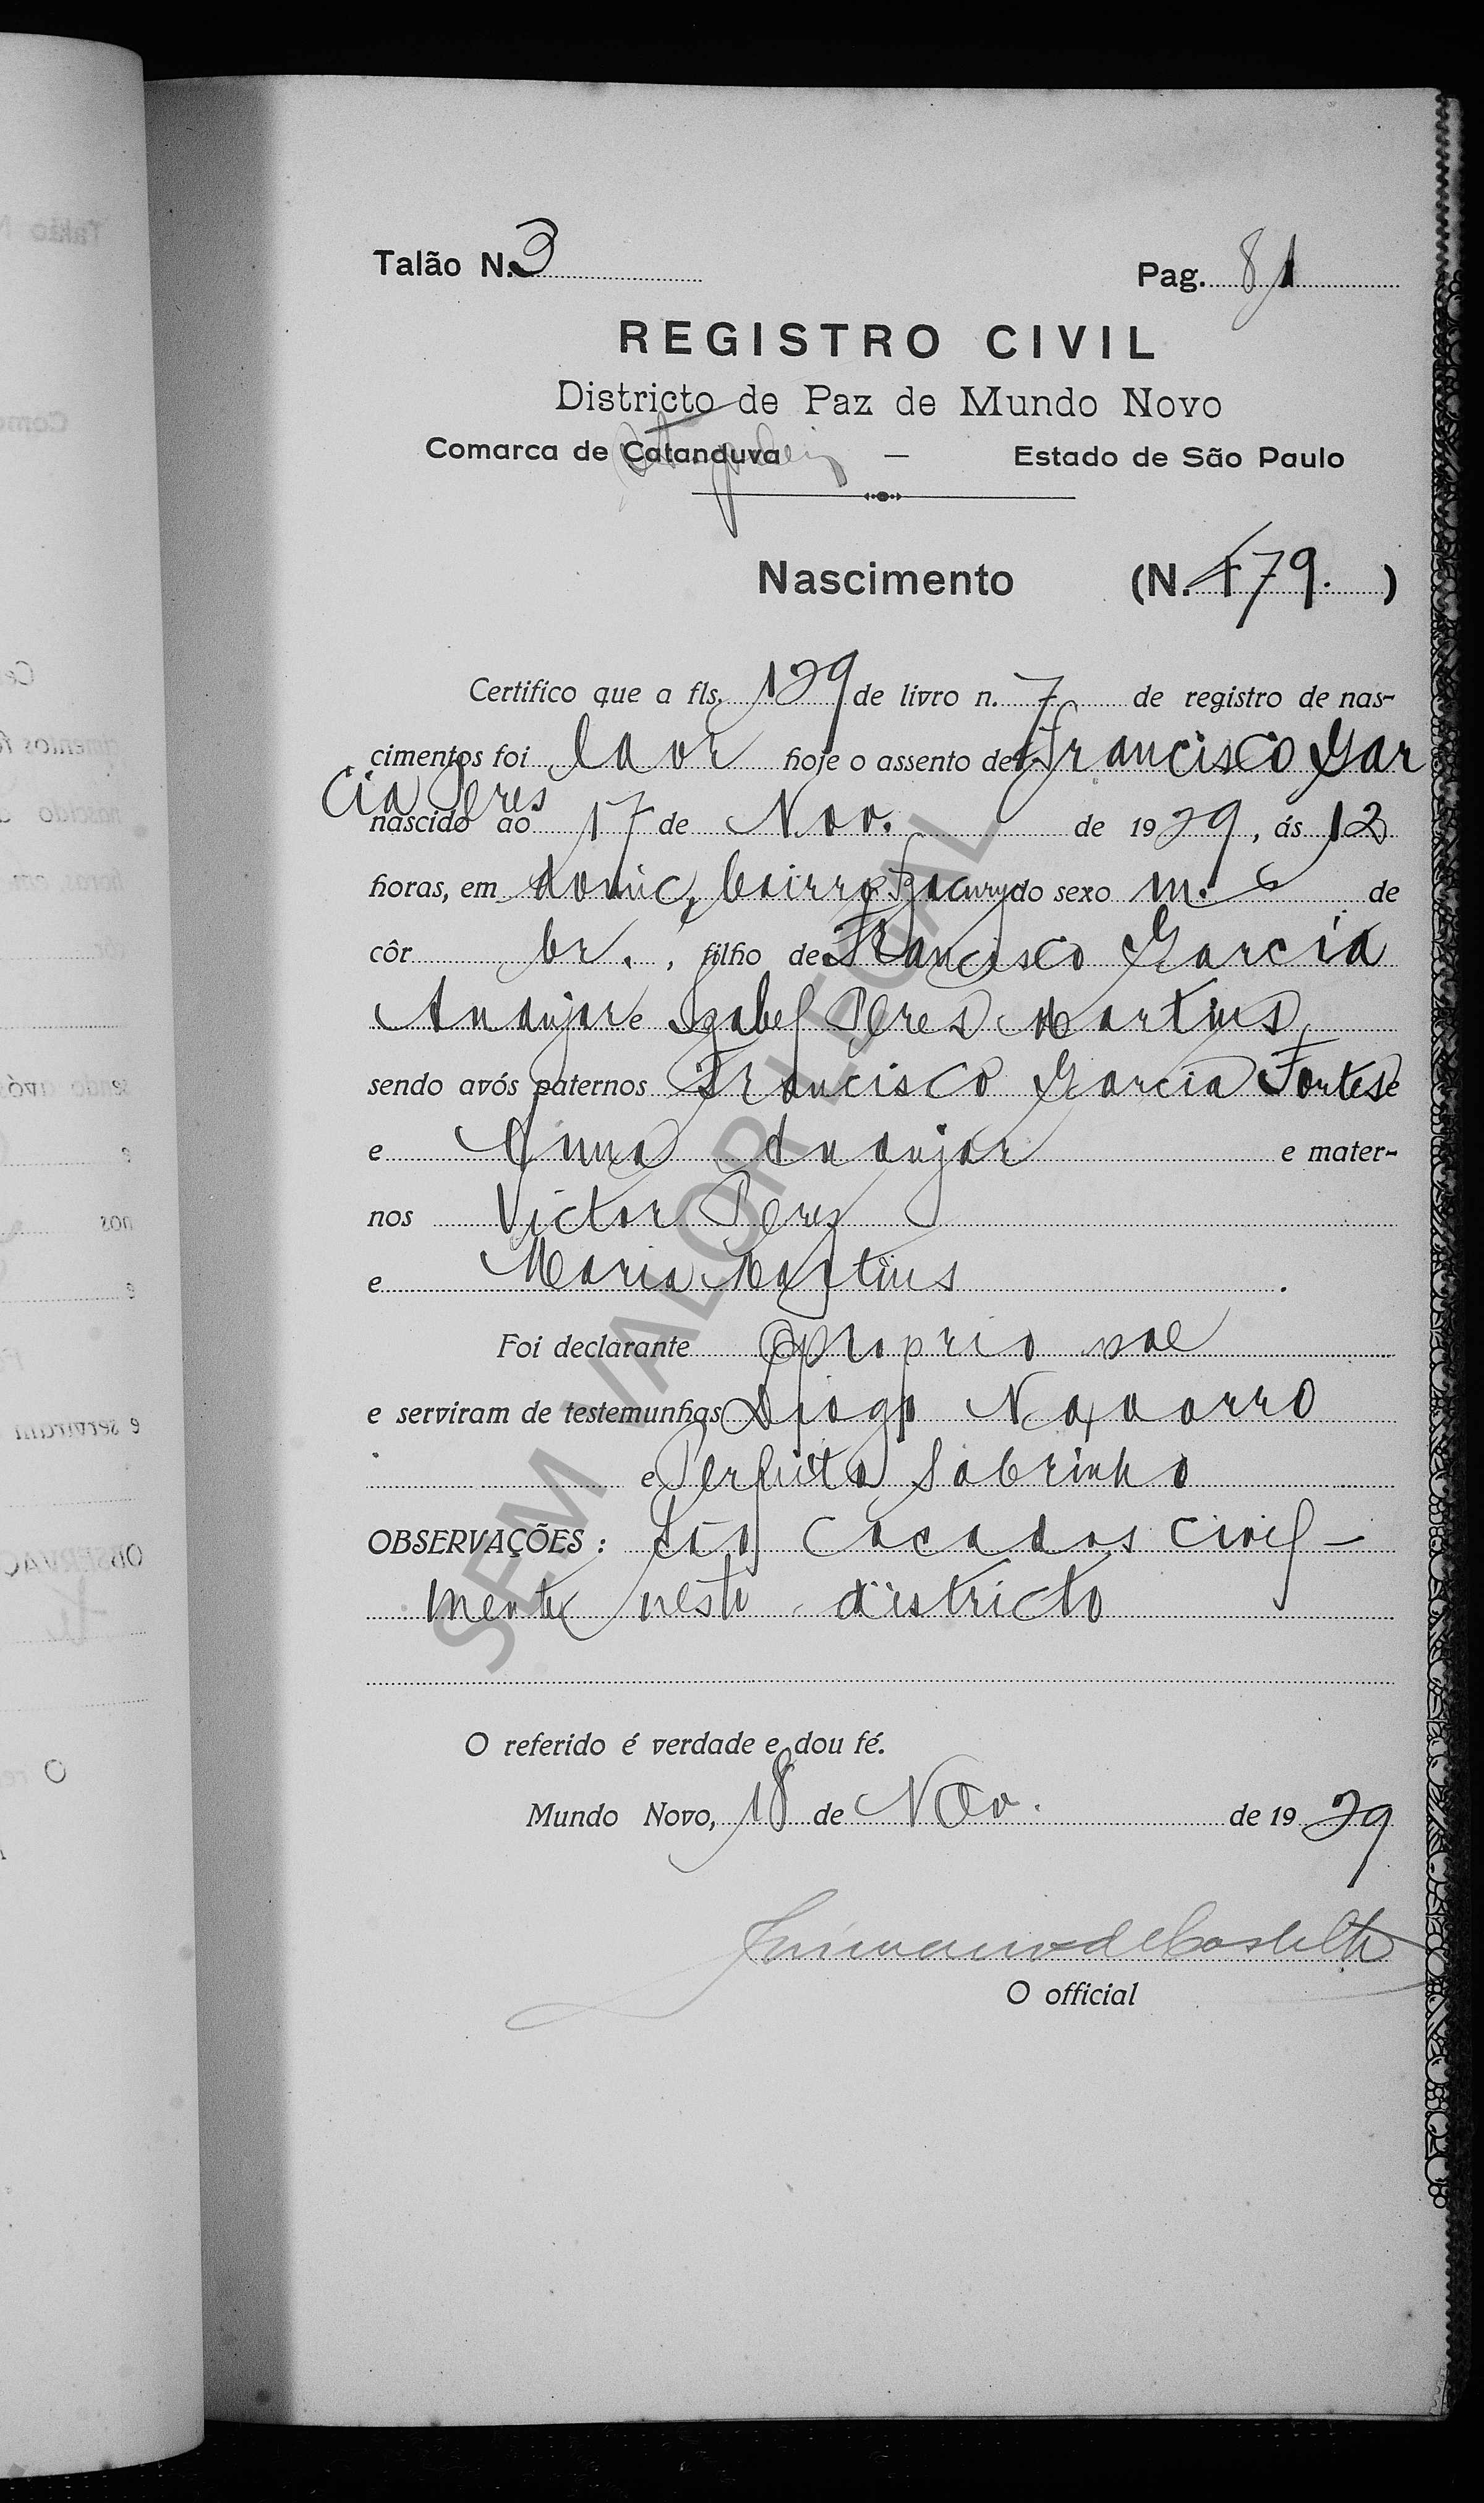 Talão N. 3 Pag. 81
REGISTRO CIVIL
Districto de Paz de Mundo Novo
Comarca de Catanduva — Estado de São Paulo
Nascimento (N. 479. )
Certifico que a fls. 129 de livro n. 7 de registro de nas-
cimentos foi lavr hoje o assento de Francisco Gar
cia Peres
nascido ao 17 de Nov. de 1929, ás 12
horas, em domic, bairro do sexo m. de
côr br. , filho de Francisco Garcia
Andujar e Izabel Peres Martins,
sendo avós paternos Francisco Garcia Fortes e
e Anna Andujar e mater-
nos Victor Peres
e Maria Martins .
Foi declarante O proprio pae
e serviram de testemunhas Diogo Navarro
e Perfeito Sobrinho
OBSERVAÇÕES : São casados civil-
mente neste districto
O referido é verdade e dou fé.
Mundo Novo, 18 de Nov. de 1929
O official
SEM VALOR LEGAL